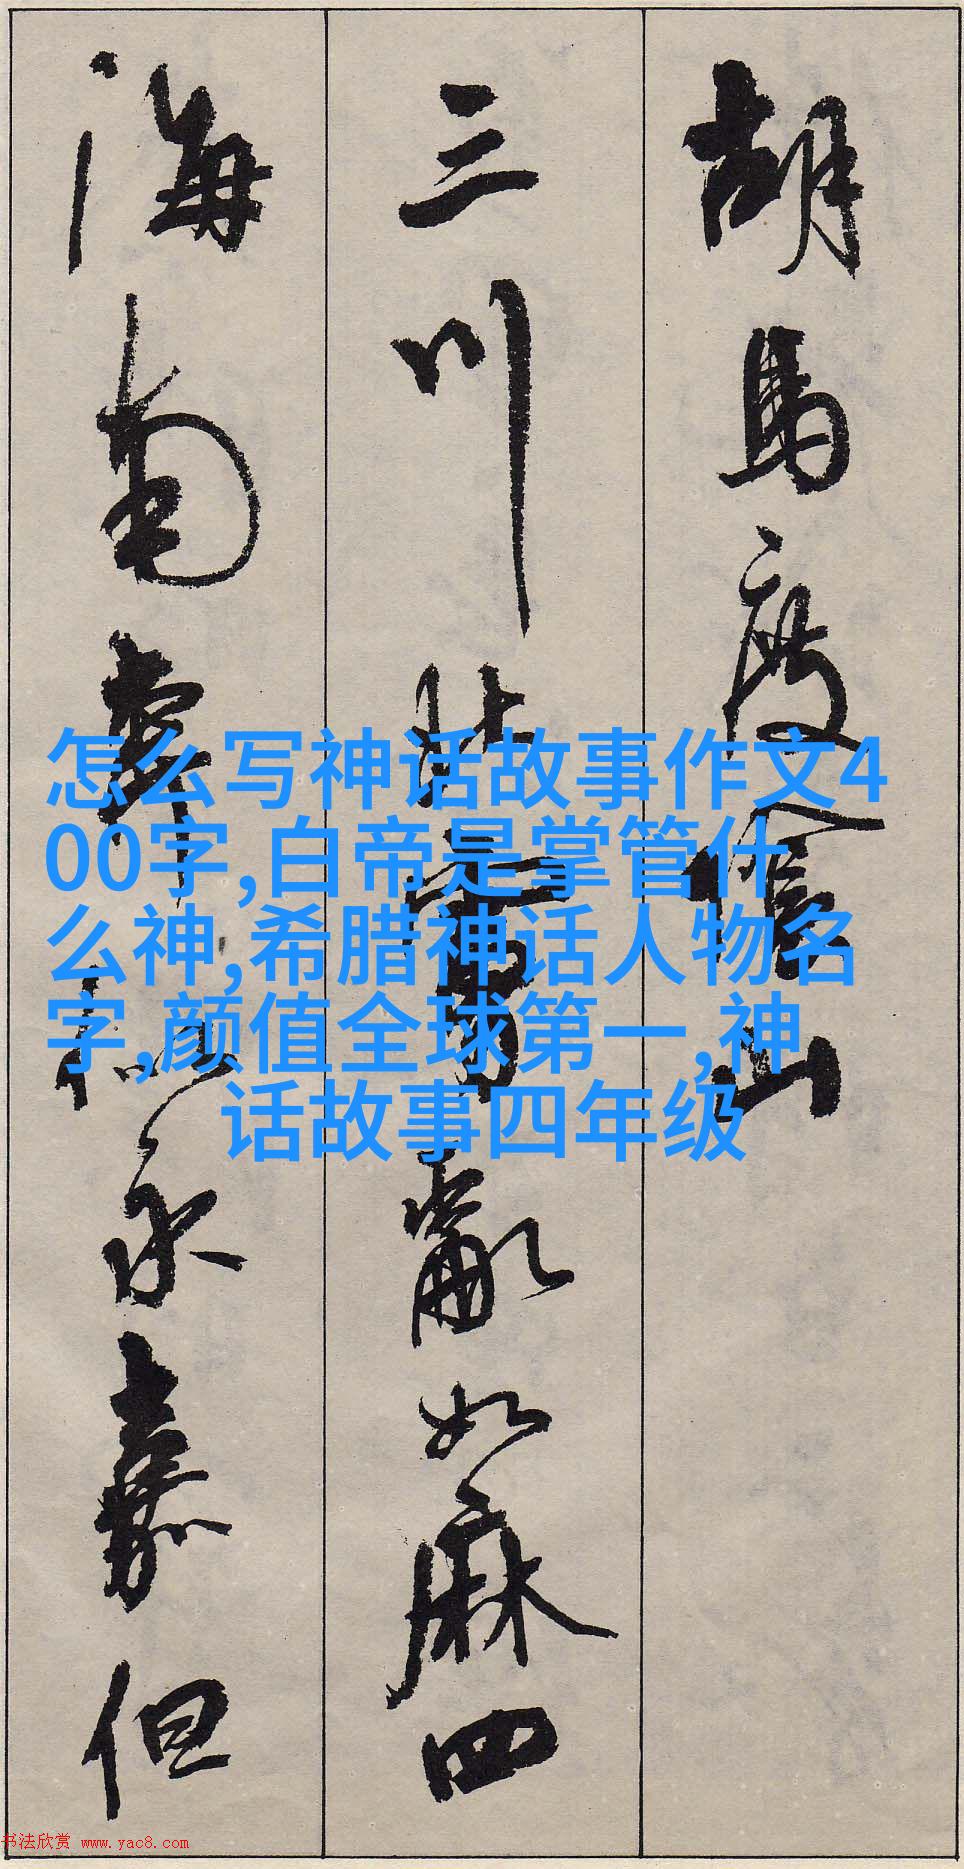 胡马度阴山
三川北虏乱如麻四
海南奔似永嘉但
怎么写神话故事作文4
00字,白帝是掌管什
么神,希腊神话人物名
字,颜值全球第一,神
话故事四年级
书法欣赏 www.yac8.com